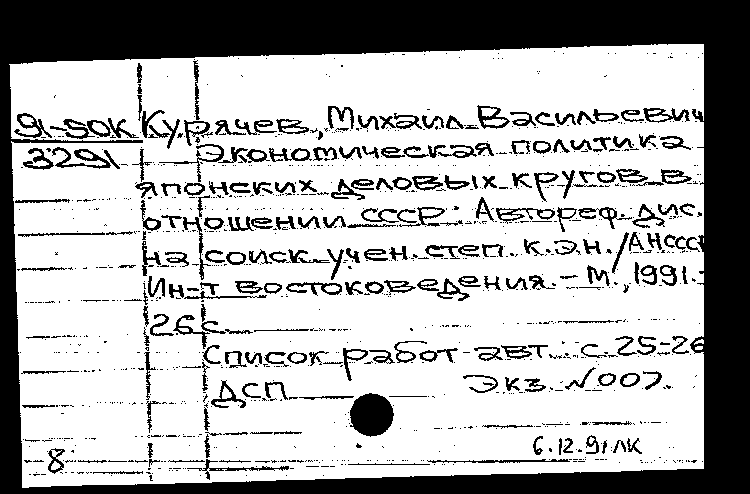 91-5ОК Курячев, Михаил Васильевич
3291 Экономическая политика
японских деловых кругов в
отношении СССР: Автореф. дис.
на соиск. учен. степ. к.э.н. / АН СССР
Ин-т востоковедения. – М., 1991.-
26 с.
Список работ авт.: с. 25-26
ДСП Экз. N 007.
6.12.91 ЛК
8